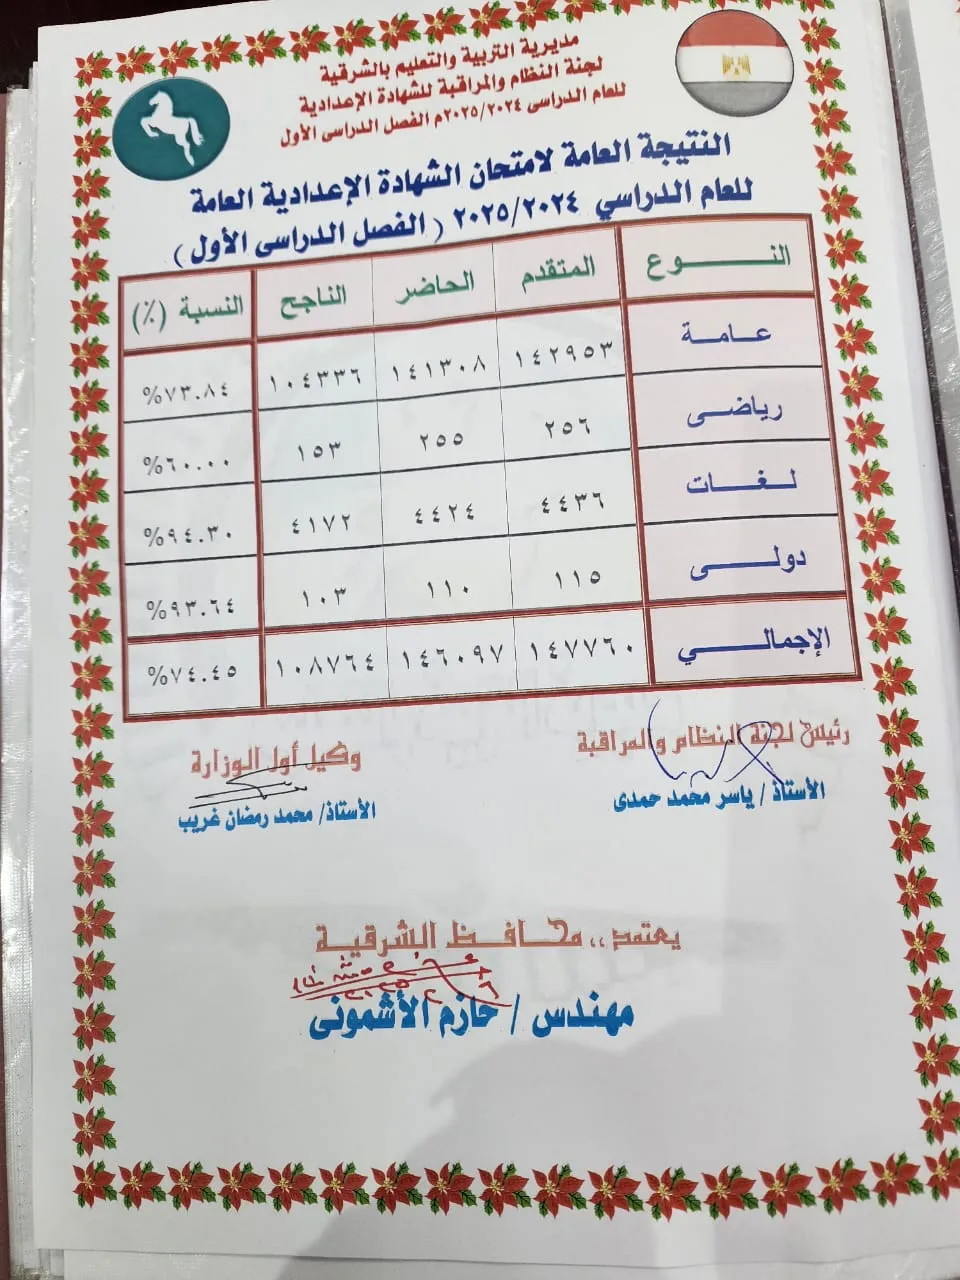 مديرية التربية والتعليم بالشرقية
لجنة النظام والمراقبة للشهادة الإعدادية
للعام الدراسى ٢٠٢٥/٢٠٢٤م الفصل الدراسى الأول
النتيجة العامة لامتحان الشهادة الإعدادية العامة
للعام الدراسي ٢٠٢٥/٢٠٢٤ ( الفصل الدراسى الأول )
النـــوع المتقدم الحاضر الناجح النسبة (٪)
عـامـة ١٤٢٩٥٣ ١٤١٣٠٨ ١٠٤٣٣٦ %٧٣.٨٤
رياضـى ٢٥٦ ٢٥٥ ١٥٣ %٦٠.٠٠
لـغـات ٤٤٣٦ ٤٤٢٤ ٤١٧٢ %٩٤.٣٠
دولـى ١١٥ ١١٠ ١٠٣ %٩٣.٦٤
الإجمالـي ١٤٧٧٦٠ ١٤٦٠٩٧ ١٠٨٧٦٤ %٧٤.٤٥
رئيس لجنة النظام والمراقبة وكيل أول الوزارة
الأستاذ / ياسر محمد حمدى الأستاذ/ محمد رمضان غريب
يعتمد،، محافظ الشرقية
مهندس / حازم الأشمونى